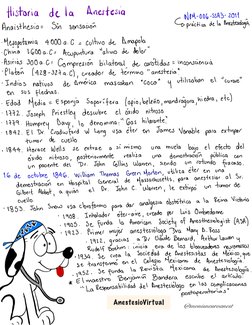 Historia de la Anestesia
NOM-006-SSA3-2011
práctica de la Anestesiología
Anaisthesia= Sin sensación
-Mesopotamia 4000 a.C = cultivo de Amapola
China 1600 a.C= Acupuntura "alivio de dolor"
Asirias 300 a.C= Compresión bilateral de carótidas=inconsciencia
-Platón (428-327 a.C), creador de termino "anestesia"
-Indios nativos de América mascaban "coca" y utilizaban el "curare" en sus flechas.
-Edad Media = Esponja Soporífera (opio, beleño, mandrágora, hiedra, etc)
-1772. Joseph Priestley descubre el óxido nitroso
-1779. Humprey Davy, lo denomina "Gas hilarante"
-1842. El Dr. Crawford W Long usa éter en James Venable para extirpar
tumor de cuello
-1844. Horace Wells se extrae a si mismo una muela bajo el efecto del
óxido nitroso, posteriormente realiza una demostración pública con
un paciente del Dr. John Collins Warren, siendo un rotundo fracaso.
16 de octubre 1846. William Thomas Green Morton, utiliza éter en una
demostración en Hospital General de Massachussets, para anestesiar al Sr.
Gilbert Abbot, a quien el Dr. John C. Warren, le extirpó un tumor de
cuello
-1853. John Snow usa cloroformo para dar analgesia obstétrica a la Reina Victoria
-1908. Intubador eter-aire, creado por Louis Elsberg.
-1905. Se funda la American Society of Anesthesiologist (ASA)
-1903. Primer mujer anestesióloga Dra Mary D. Ross
-1912, gracias a Dr Claude Bernard, Arthur Lawen y
Rudolf Boehm: inicia era de los bloqueadores neuromusc.
-1934. Se crea la Sociedad de Anestesistas de México, que
se transforma en el Colegio Mexicano de Anestesiología
-1952. Se funda la Revista Mexicana de Anestesiología
El maestro Benjamín Bandera escribe el artículo
"La Responsabilidad del Anestesiólogo en las complicaciones
postoperatorias"
AnestesioVirtual